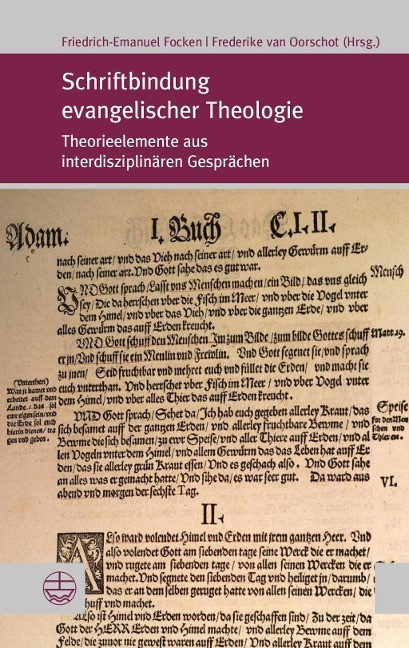 Friedrich-Emanuel Focken | Frederike van Oorschot (Hrsg.)
Schriftbindung
evangelischer Theologie
Theorieelemente aus
interdisziplinären Gesprächen
Adam. I. Buch C. I. II.
nach seiner art/ vnd das Vieh nach seiner art/ vnd allerley Gewürm auff Er-
den/ nach seiner art. Vnd Gott sahe das es gut war.
VND Gott sprach/ Lasst vns Menschen machen/ ein Bild/ das vns gleich
Mensch
sey/ Die da herrschen vber die Fisch im Meer/ vnd vber die Vogel vnter
dem Himel/ vnd vber das Vieh/ vnd vber die gantzen Erde/ vnd vber
alles Gewürm das auff Erden kreucht.
VND Gott schuff den Menschen Jm zum Bilde/ zum bilde Gottes schuff
Matt 19.
er jn/ Vnd schuff sie ein Menlin vnd Frewlin. Vnd Gott segenet sie/ vnd sprach
zu jnen/ Seid fruchtbar vnd mehret euch vnd füllet die Erden/ vnd macht sie
euch vnterthan. Vnd herrschet vber Fisch im Meer/ vnd vber Vogel vnter
dem Himel/ vnd vber alles Thier das auff Erden kreucht.
(Vnterthan)
Was jr bawet vnd
erbeitet auff dem
Lande/ das sol
ewr eigen sein/ vnd
die Erd sol euch
hierin dienen/ tra-
gen vnd geben.
VND Gott sprach/ Sehet da/ Jch hab euch gegeben allerley Kraut/ das
Speise
sich besamet auff der gantzen Erden/ vnd allerley fruchtbare Bewme/ vnd
für den Men
Bewme die sich besamen/ zu ewr Speise/ vnd aller Thiere auff Erden/ vnd al
schen vnd
len Vogeln vnter dem Himel/ vnd allem Gewürm das das Leben hat auff Er
Thier etc.
den/ das sie allerley grün Kraut essen/ Vnd es geschach also. Vnd Gott sahe
an alles was er gemacht hatte/ Vnd sihe da/ es war seer gut. Da ward aus
VI.
abend vnd morgen der sechste Tag.
II.
Also ward volendet Himel vnd Erden mit jrem gantzen Heer. Vnd
also volendet Gott am siebenden tage seine Werck die er machet/
vnd rugete am siebenden tage/ von allen seinen Wercken die er
machet. Vnd segnete den siebenden Tag vnd heiliget jn/ darumb/
das er an dem selben geruget hatte von allen seinen Wercken/ die
schuff vnd machet.
Also ist Himel vnd Erden worden/ da sie geschaffen sind/ Zu der zeit/ da
Gott der HERR Erden vnd Himel machte/ vnd allerley Bewme auff dem
Felde/ die zuuor nie gewest waren auff Erden/ Vnd allerley Kraut auff dem